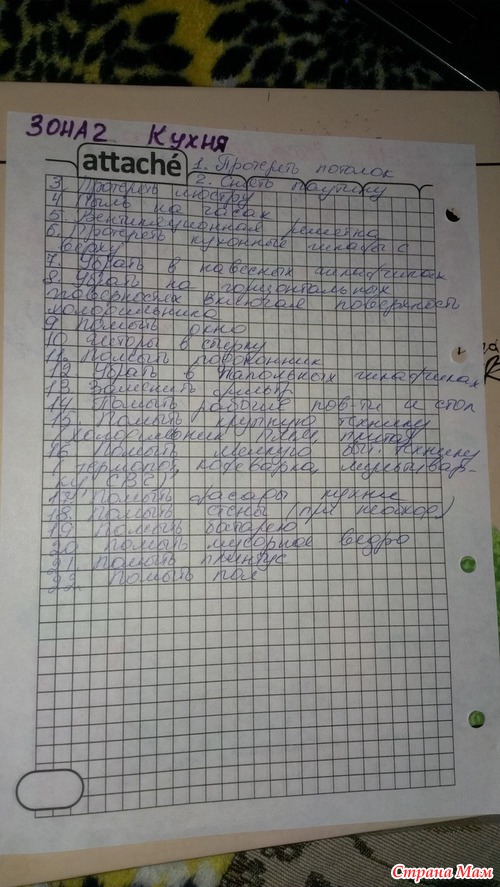 ЗОНА2 Кухня
attaché
1. Протереть потолок
2. Снять паутину
3. Протереть люстру
4 Пыль на часах
5. Вентиляционная решетка
6. Протереть кухонные шкафы с
верху
7. Убрать в навесных шкафчиках
8 Убрать на горизонтальных
поверхностях включая поверхность
холодильника
9 Помыть окно
10 Шторы в стирку
11. Помыть подоконник
12 Убрать в напольных шкафчиках
13. Заменить фильтр
14 Помыть рабочие пов-ти и стол
15. Помыть крупную технику
(холодильник, плита,
16 Помыть мелкую быт. технику
(термопот, кофеварка, мультивар-
ку, СВЧ)
17 Помыть фасады кухни
18 Помыть стены (при необход)
19 Помыть батарею
20 Помыть мусорное ведро
21. Помыть плинтус
22. Помыть пол
Страна Мам